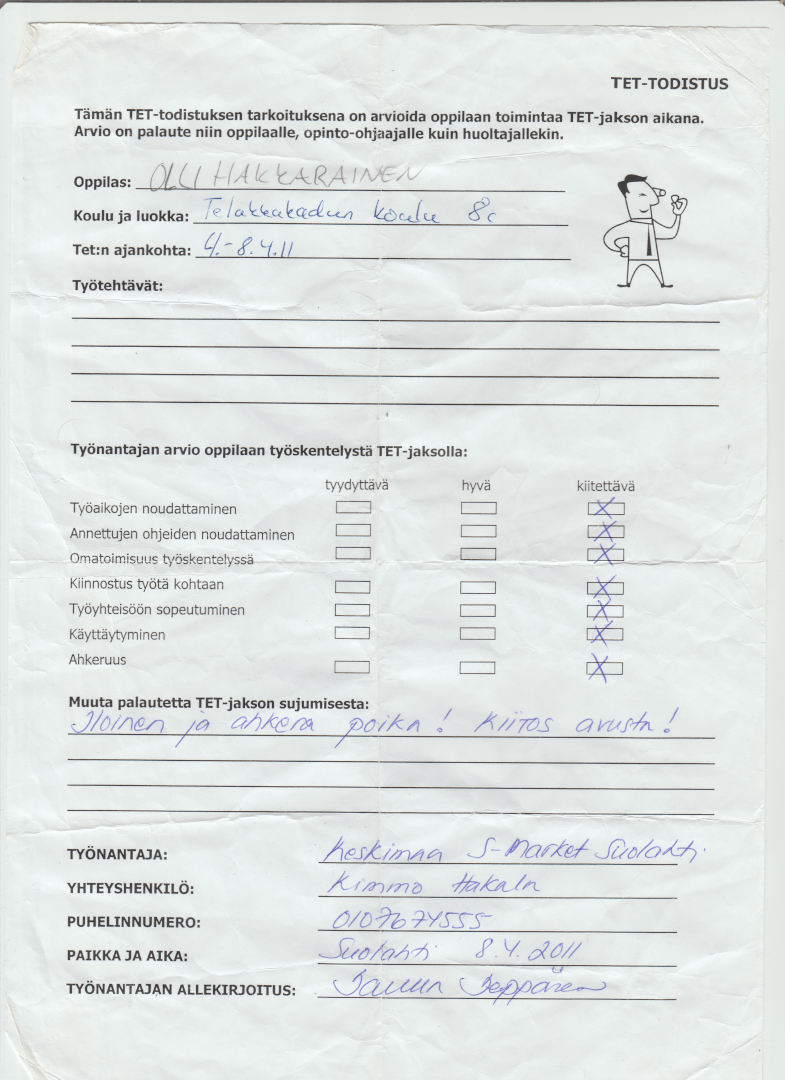 TET-TODISTUS
Tämän TET-todistuksen tarkoituksena on arvioida oppilaan toimintaa TET-jakson aikana.
Arvio on palaute niin oppilaalle, opinto-ohjaajalle kuin huoltajallekin.
Oppilas: OLLI HAKKARAINEN
Koulu ja luokka: Telakkakadun koulu 8c
Tet:n ajankohta: 4.-8.4.11
Työtehtävät:
Työnantajan arvio oppilaan työskentelystä TET-jaksolla:
tyydyttävä hyvä kiitettävä
Työaikojen noudattaminen X
Annettujen ohjeiden noudattaminen X
Omatoimisuus työskentelyssä X
Kiinnostus työtä kohtaan X
Työyhteisöön sopeutuminen X
Käyttäytyminen X
Ahkeruus X
Muuta palautetta TET-jakson sujumisesta:
Iloinen ja ahkera poika! Kiitos avusta!
TYÖNANTAJA: Keskimaa S-Market Suolahti
YHTEYSHENKILÖ: Kimmo Hakala
PUHELINNUMERO: 0107674555
PAIKKA JA AIKA: Suolahti 8.4.2011
TYÖNANTAJAN ALLEKIRJOITUS: